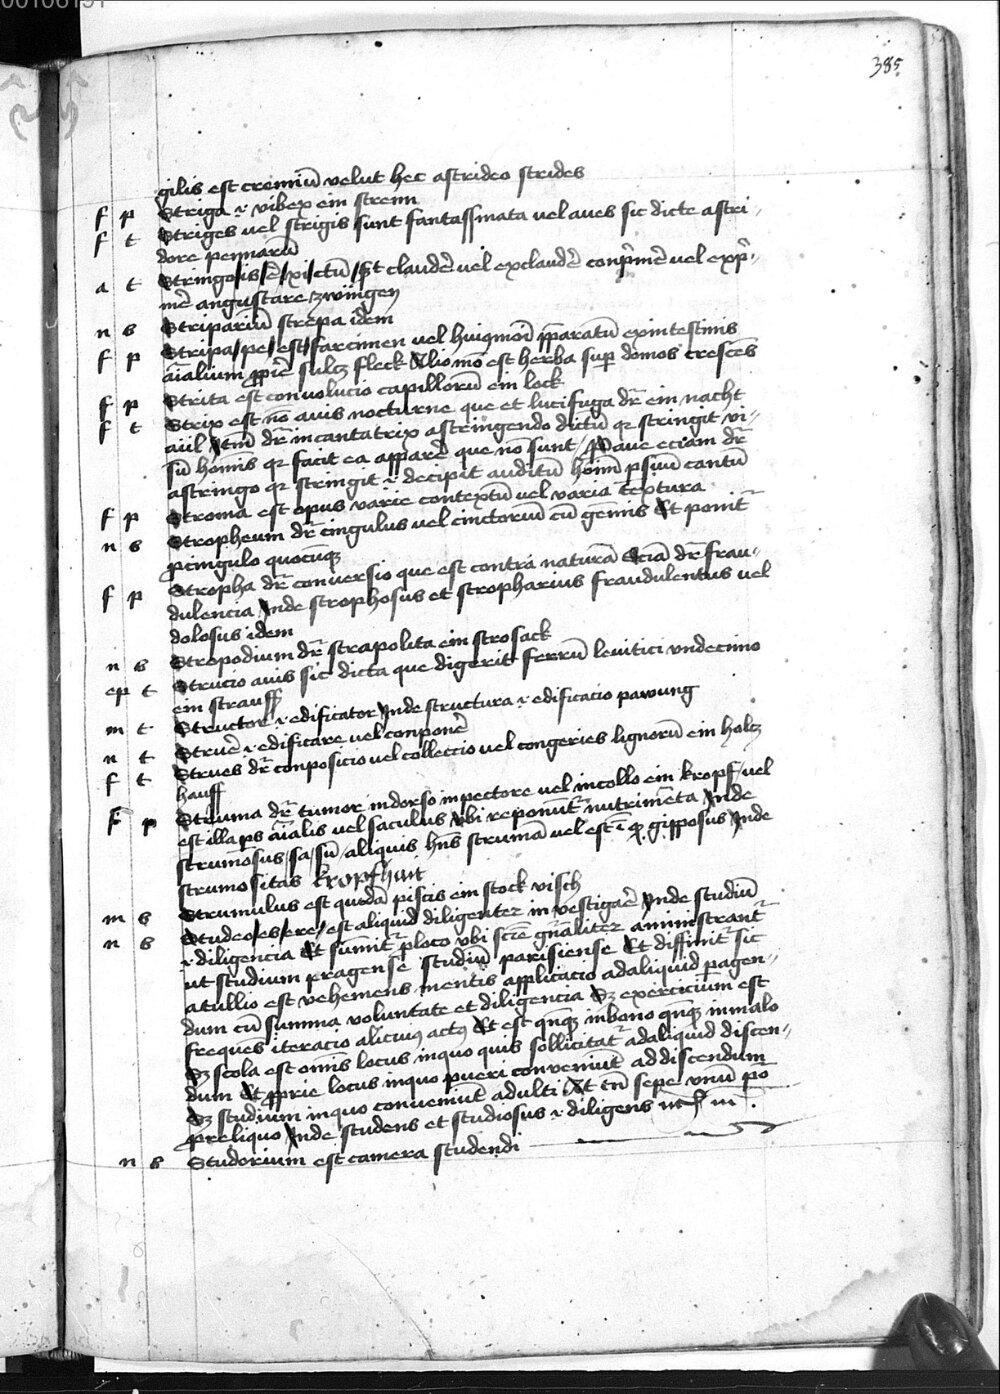 00106151
385
gilis est cremiū velut hec astrideo strides
f p Striga .i. vibex ein stremi
f t Striges vel strigis sunt fantassmata vel aues sic dicte a stri-
dore pennarū
a t Stringo/is/ē/xi/ctū/st claudē vel excludē conp̄mē vel exp̄-
mē angustare zwingen
n s Stripariū strepa idem
f p Stripa/pe/est/farcimen vel huiꝰmōi p̄paratū ex intestinis
aīalium ꝓpie sulcz fleck Alio mō est herba sup domos crescēs
f p Strita est convolucio capillorū ein lock
f t Strix est nō avis nocturne que et lucifuga dr̄ ein nacht
aiil Itm̄ dr̄ incantatrix a stringendo dictū qꝛ stringit vi-
sū hōmis qꝛ facit ea apparē que nō sunt / P aue eciam dr̄
a stringo qꝛ stringit .i. decipit auditū hōim p suū cantū
f p Stroma est opus varie contextū vel varia textura
n s Stropheum dr̄ cingulus vel cinctoriū cū gemis Et ponit᷑
p cingulo quocūqꝫ
f p Stropha dr̄ conversio que est contra naturā Eciā dr̄ frau-
dulencia Inde strophosus et stropharius fraudulentus vel
dolosus idem
n s Stropodium dr̄ strapolita ein strosack
ep t Strucio auis sic dicta que digerit ferrū levitici vndecimo
ein strauss
m t Structor .i. edificator Inde structura .i. edificacio pawung
n t Struē .i. edificare vel componē
f t Strues dr̄ composicio vel colleccio vel congeries lignorū ein holcz
hauff
f p Struma dr̄ tumor in dorso in pectore vel in collo ein kropf/ vel
est illa ps aīalis vel saculus vbi reponūt᷑ nutrimēta Inde
strumosus/sa/sū/ aliquis hn̄s strumā vel est .i. gipposus Inde
strumositas kropfhait
m s Strumulus est quedā piscis ein stock visch
n s Studeo/es/ere/est aliquid diligenter investigaē Inde studiū
.i. diligencia Et sūmit᷑ p loco vbi sciē gn̄aliter aministrant᷑
ut studium pragense studiū parisiense Et diffinit᷑ sic
a tullio est vehemens mentis applicacio ad aliquid pagen-
dum cū summa voluntate et diligencia Sꝫ exercicium est
frequēs iteracio alicuiꝰ actꝰ Et est qn̄qꝫ in bono qn̄qꝫ in malo
Sꝫ scola est omīs locus in quo quis sollicitat᷑ ad aliquid discen-
dum Et ꝓprie locus in quo pueri conveniūt ad discendum
Sꝫ studium in quo conveniūt adulti Et tn̄ sepe vnū po
p reliquo Inde studens et studiosus .i. diligens
n s Studorium est camera studendi